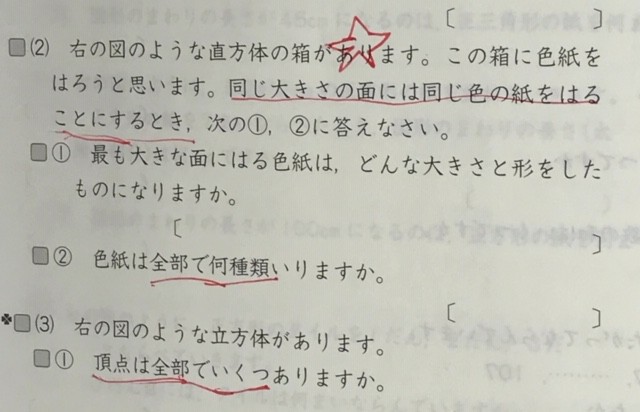 〔 〕
(2) 右の図のような直方体の箱があります。この箱に色紙を
はろうと思います。同じ大きさの面には同じ色の紙をはる
ことにするとき，次の①，②に答えなさい。
① 最も大きな面にはる色紙は，どんな大きさと形をした
ものになりますか。
〔 〕
② 色紙は全部で何種類いりますか。
〔 〕
(3) 右の図のような立方体があります。
① 頂点は全部でいくつありますか。